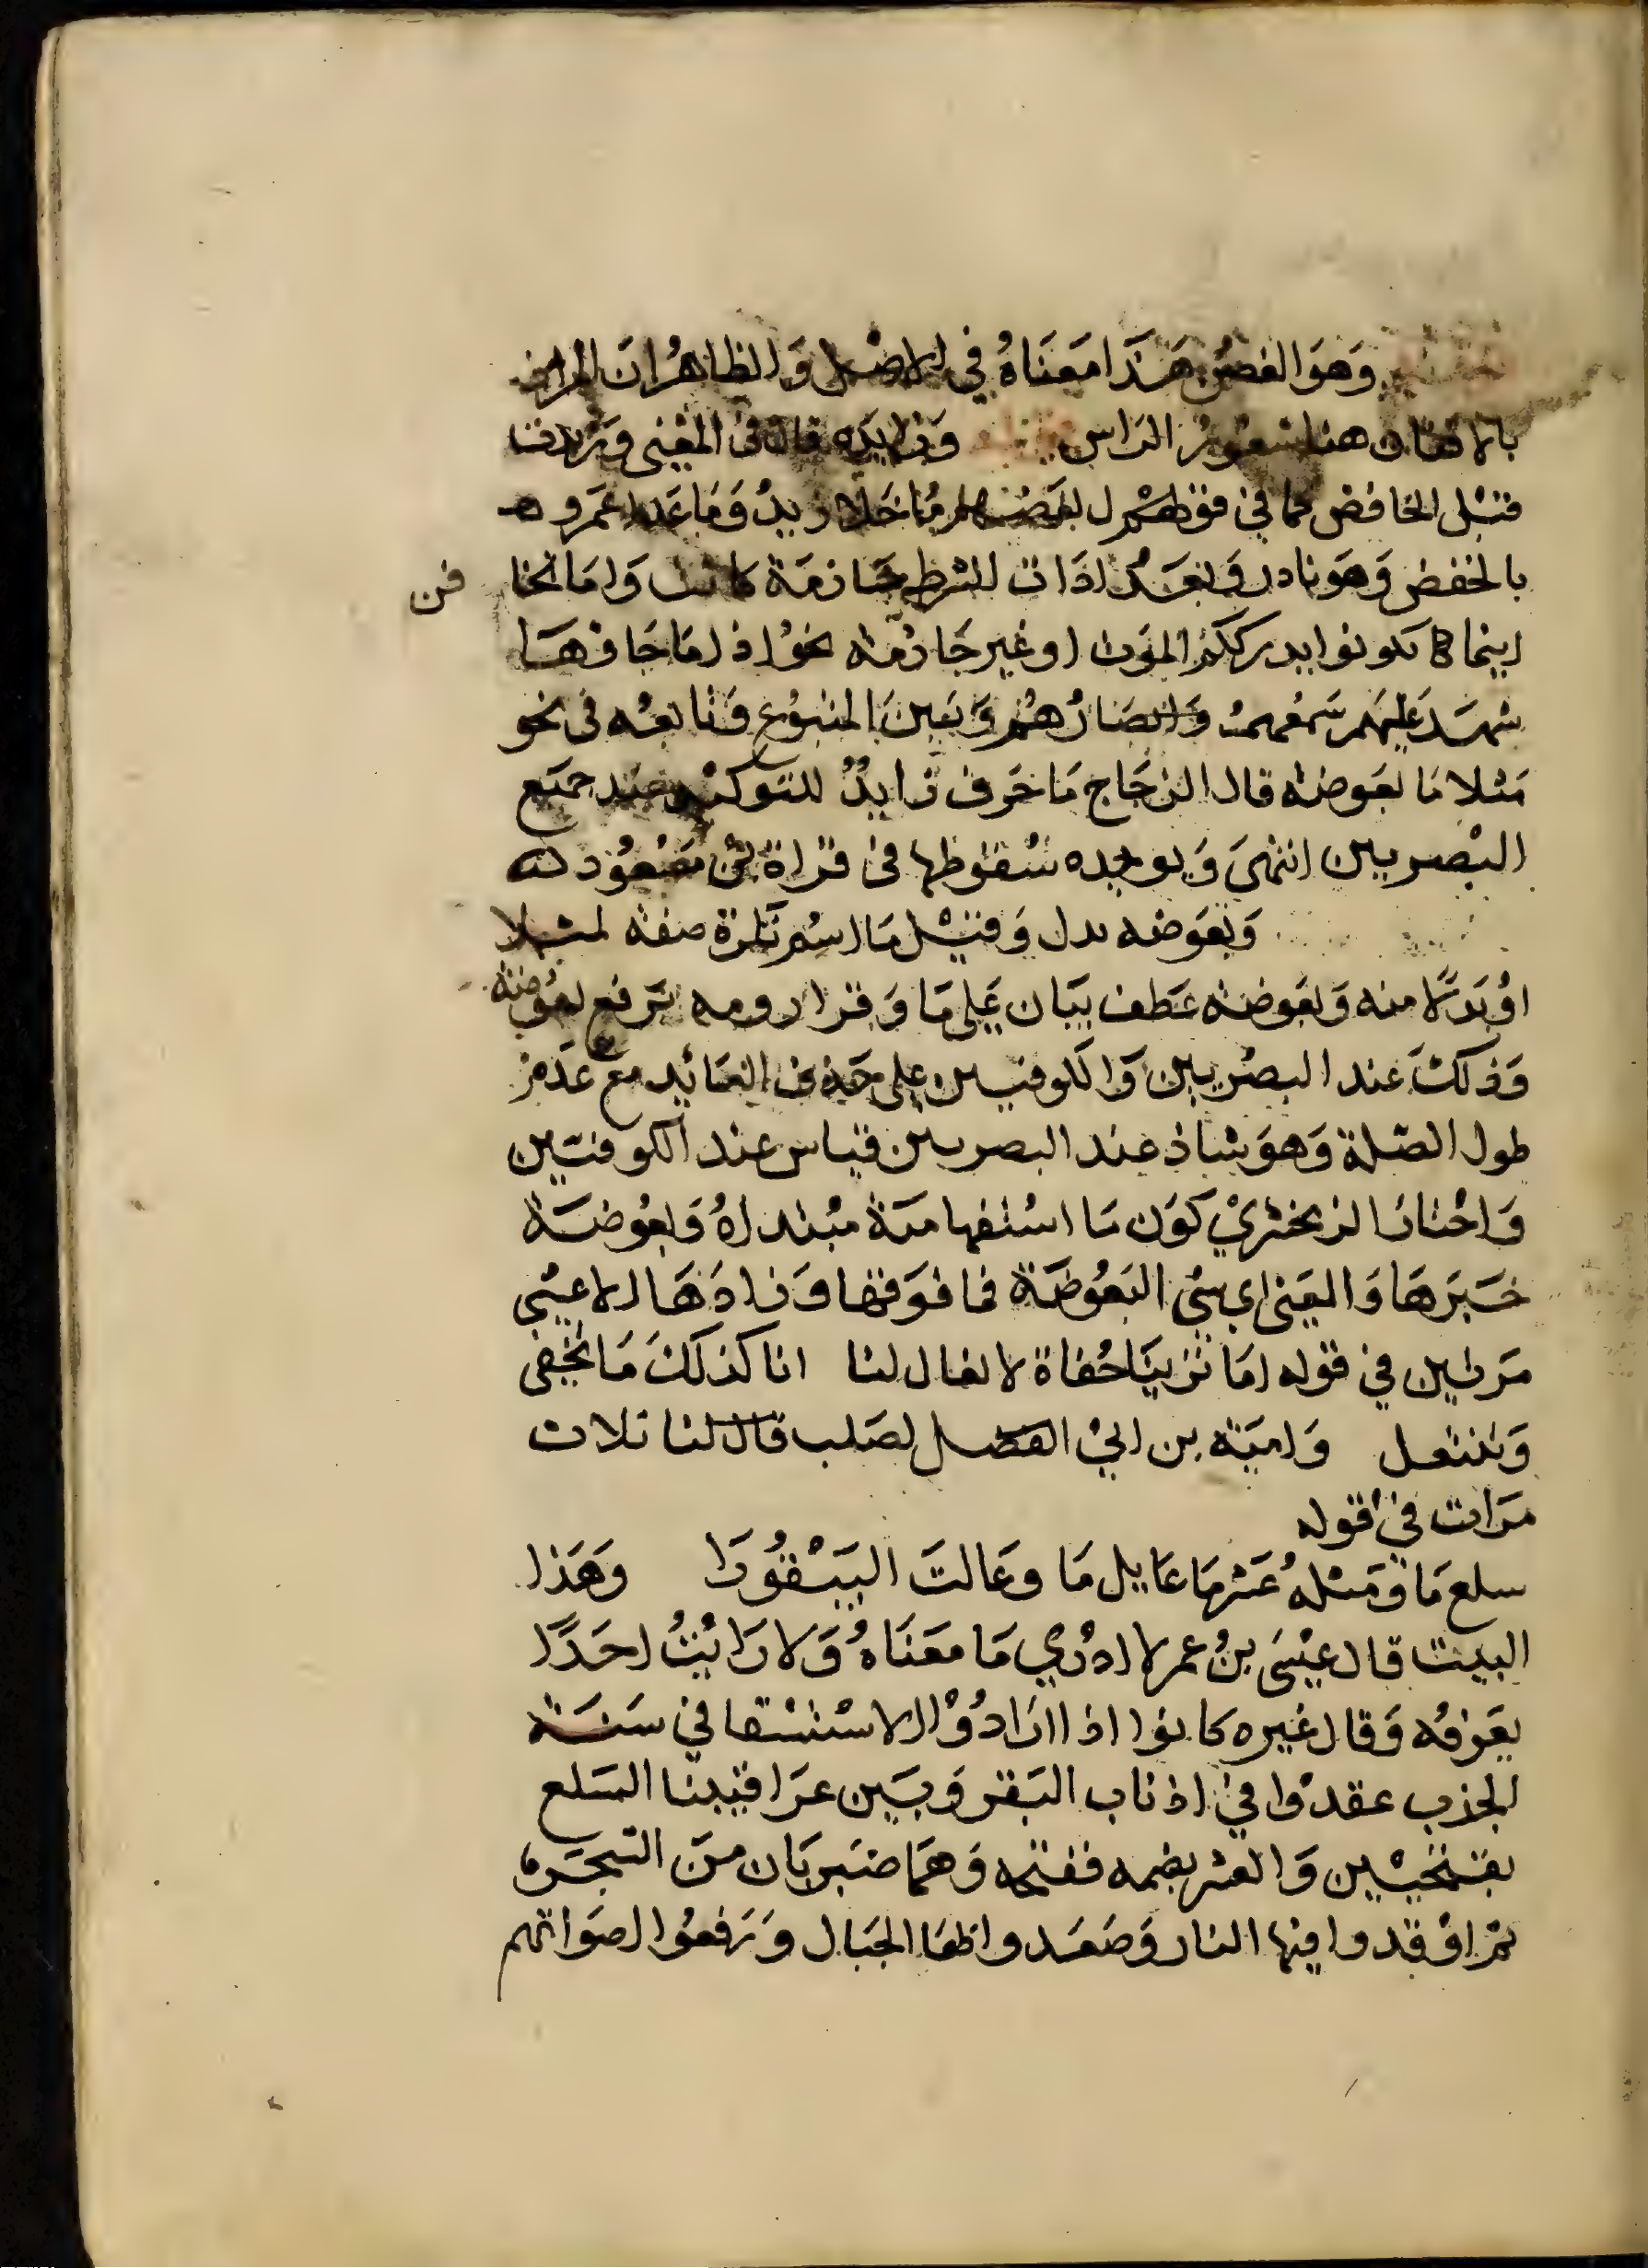 وَهوَ الغصن هَذا مَعنَاهُ في الاصْل وَالظاهرُ ان المراد
بالافنان هنا شعور الراس وَزايده قال في المغنى وَزيدت
قبْل الخافض كما في قول بعضهم مَا خَلا زيدٍ وَمَا عَدا عَمرو
بالخفض وَهوَ نادر وَبَعد اداة الشرط جَازمَة كانت وَامَا تخا فن
اينما تكونوا يدرككم الموَت او غير جَازمَة نحوُ اذ امَا جَاوْهَا
شهدَ عليهم سَمعهمْ وَابصَارُهُم وَبَين المتبوُع وَتابعُه في نحو
مَثلا مَا بعَوضة قال الزجَاج مَا حَرف زايدٌ للتوكيْد عند جمَيع
البْصريين انتهىَ وَيويده سُقوطها في قراة بْن مَسْعُود
وَبعَوضه بدل وَقيْل مَا اسْم نكرة صفة لمثلا
اوْ بَدَلا منه وَبعَوضة عَطف بيَان عَلى مَا وَقرا روبه برَفع بعوُضة
وَذلكَ عند البصْريين وَالكوفيين على حَذف العَائد مع عَدم
طول الصّلة وَهوَ شاذ عند البصريين قياس عند الكوفيّين
وَاخْتار الزمخشريْ كوَن مَا استْفهامَية مبْتدا وَبعُوضَة
خبَرهَا وَالمعَنى اي شيْ البَعُوضَة فما فوَقها وَزادَهَا الاعشْى
مَرتين في قوله امَا ترَينَا حُفاة لا نعال لنا انا كذلكَ مَا نحْفى
وَننتعل وَاميَة بن ابيْ الصَلت قال لنا ثلاث
مَرات في قوله
سلع مَا وَمثْلهُ عُشَر مَا عَايل مَا وعَالتَ البَيْقُورَا وَهَذا
البيت قال عيْسىَ بنُ عمر لا ادْري مَا معَنَاهُ وَلا رَايْتُ احَدًا
يعَرفُه وَقال غيره كانوا اذا ارَادُوْا الاسْتسْقا في سَنَة
الجذب عقدْوا فيْ اذناب البَقر وَبَين عرَاقيبها السَلع
بفتحتيْن وَالعشر بضمه ففتحه وَهمَا ضرَبان منَ الشجَرة
ثمّ اوْقدوا فيْها النار وَصَعَدوا ظها الجبَال وَرَفعوُا اصوَاتهم